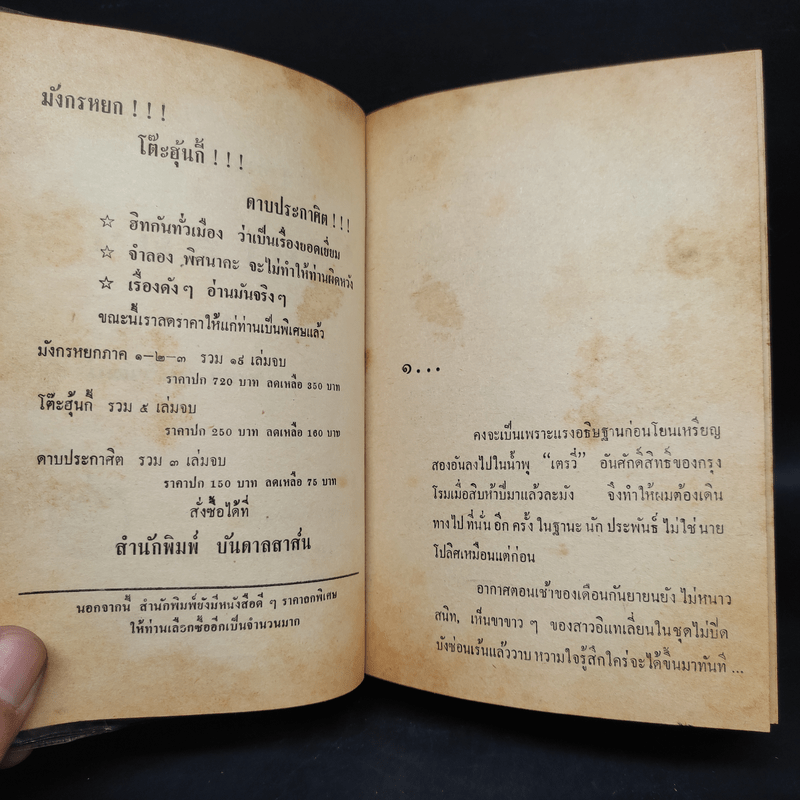 มังกรหยก ! ! !
โต๊ะฮุ้นกี้ ! ! !
ดาบประกาศิต ! ! !
☆ ฮิทกันทั่วเมือง ว่าเป็นเรื่องยอดเยี่ยม
☆ จำลอง พิศนาคะ จะไม่ทำให้ท่านผิดหวัง
☆ เรื่องดัง ๆ อ่านมันจริง ๆ
ขณะนี้เราลดราคาให้แก่ท่านเป็นพิเศษแล้ว
มังกรหยกภาค ๑-๒-๓ รวม ๑๙ เล่มจบ
ราคาปก 720 บาท ลดเหลือ 350 บาท
โต๊ะฮุ้นกี้ รวม ๕ เล่มจบ
ราคาปก 250 บาท ลดเหลือ 160 บาท
ดาบประกาศิต รวม ๓ เล่มจบ
ราคาปก 150 บาท ลดเหลือ 75 บาท
สั่งซื้อได้ที่
สำนักพิมพ์ บันดาลสาส์น
นอกจากนี้ สำนักพิมพ์ยังมีหนังสือดี ๆ ราคาลดพิเศษ
ให้ท่านเลือกซื้ออีกเป็นจำนวนมาก
๑...
คงจะเป็นเพราะแรงอธิษฐานก่อนโยนเหรียญ
สองอันลงไปในน้ำพุ “เตรวี่” อันศักดิ์สิทธิ์ของกรุง
โรมเมื่อสิบห้าปีมาแล้วละมัง จึงทำให้ผมต้องเดิน
ทางไป ที่นั่น อีก ครั้ง ใน ฐานะ นัก ประพันธ์ ไม่ ใช่ นาย
โปลิศเหมือนแต่ก่อน
อากาศตอนเช้าของเดือนกันยายนยัง ไม่หนาว
สนิท, เห็นขาขาว ๆ ของสาวอิแทเลี่ยนในชุดไม่ปิด
บังซ่อนเร้นแล้ววาบ หวามใจรู้สึกใคร่จะได้ขึ้นมาทันที ...